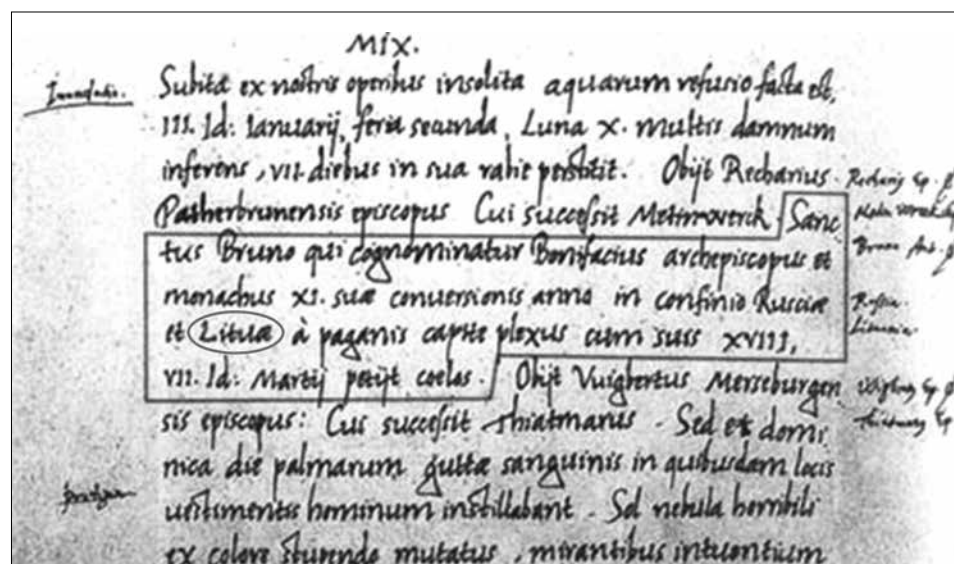 MIX.
Subitæ ex nostris operibus insolita aquarum refusio facta est,
III. Id: Ianuarij, feria secunda, Luna X. multis damnum
inferens, VII. diebus in sua rabie perstitit. Obijt Recharius
Patherbrunensis episcopus Cui successit Meinwerck. Sanc
tus Bruno qui cognominatur Bonifacius archepiscopus et
monachus XI. suæ conuersionis anno in confinio Rusciæ
et Lituæ à paganis capite plexus cum suis XVIII,
VII. Id: Martij petijt coelos. Obijt Vuigbertus Merseburgen
sis episcopus: Cui successit Thiatmarus. Sed et domi
nica die palmarum guttæ sanguinis in quibusdam locis
uestimentis hominum instillabant. Sol nebula horribili
ex colore stupendo mutatus, mirantibus intuentium
Ruscia.
Lituania.